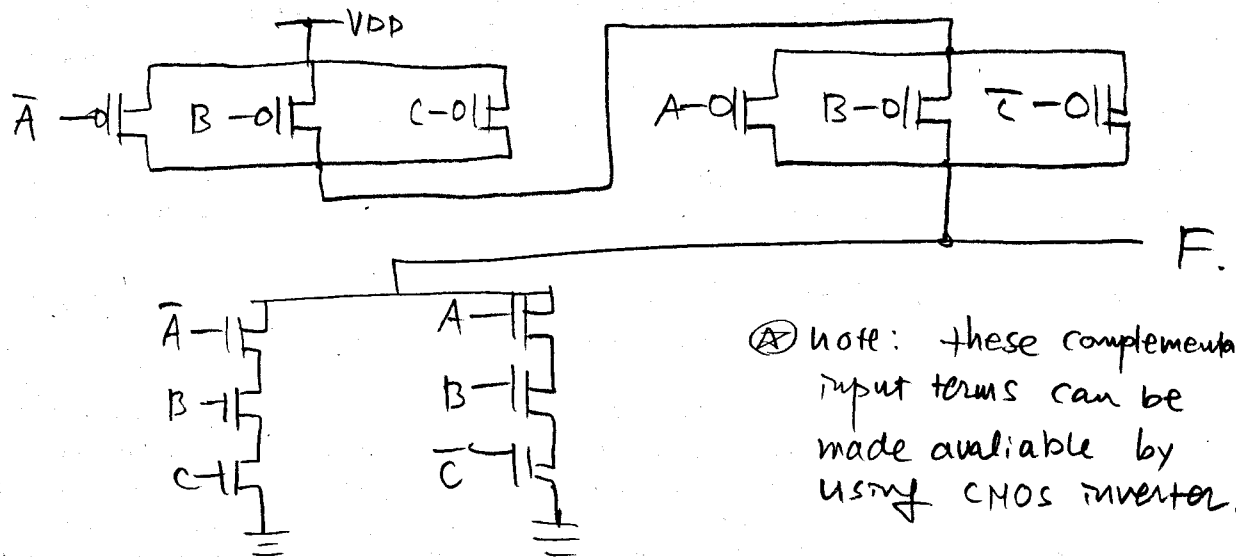 VDD
A̅ B C A B C̅
F.
A̅ A
B B
C C̅
Ⓐ note: these complementa
input terms can be
made avaliable by
using CMOS inverter.